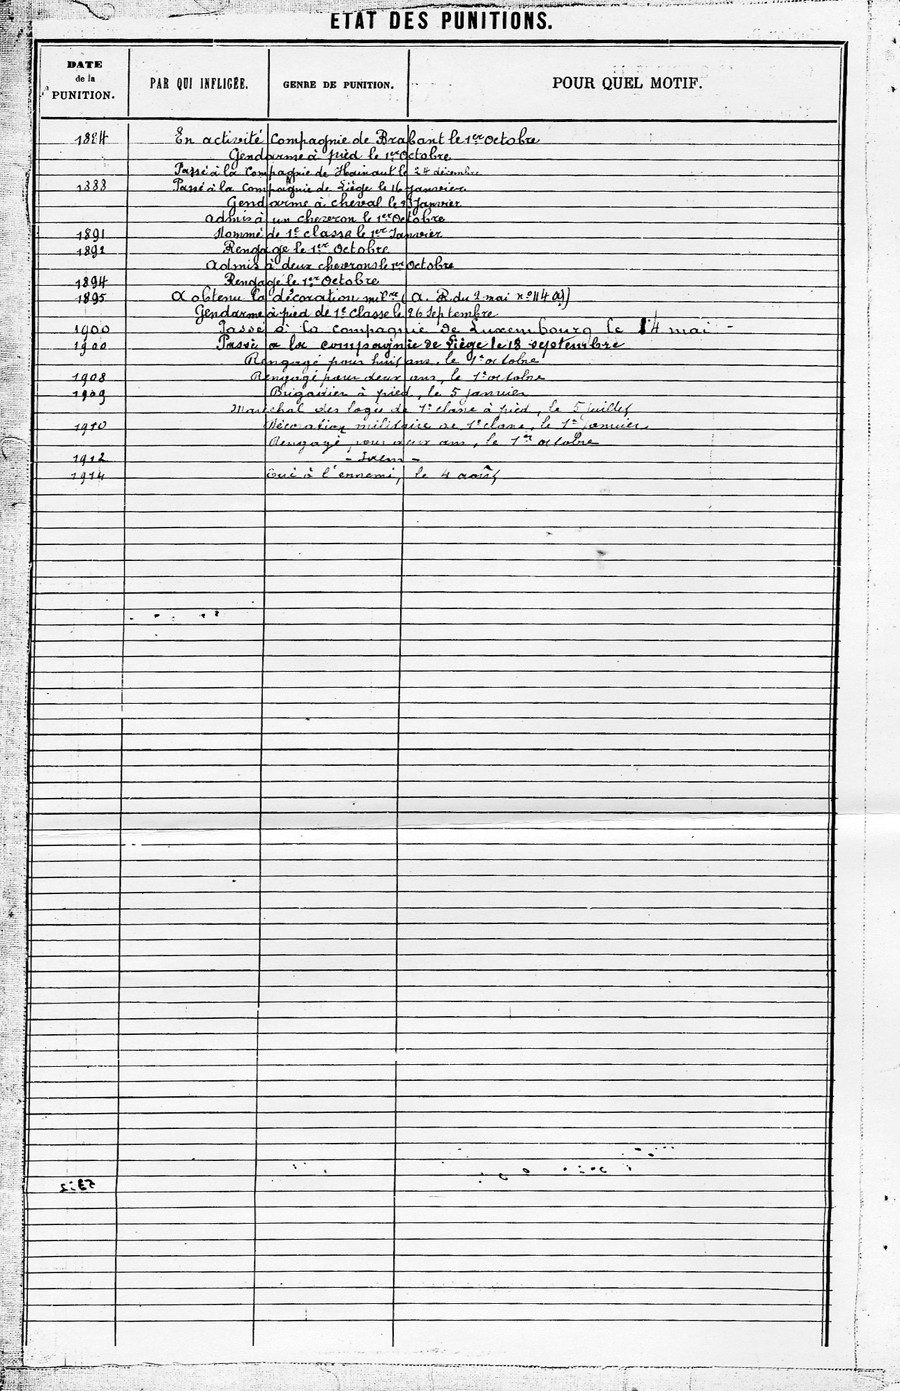 ETAT DES PUNITIONS.
DATE de la PUNITION.
PAR QUI INFLIGÉE.
GENRE DE PUNITION.
POUR QUEL MOTIF.
1884 En activité Compagnie de Brabant le 1er Octobre
Gendarme à pied le 1er Octobre
Passé à la Compagnie de Hainaut le 24 décembre
1888 Passé à la Compagnie de Liège le 16 Janvier
Gendarme à cheval le Janvier
Admis à un chevron le 1er Octobre
1891 Nommé de 1e classe le 1er Janvier
1892 Rengagé le 1er Octobre
Admis à deux chevrons le 1er Octobre
1894 Rengagé le 1er Octobre
1895 A obtenu la décoration milre (A. R. du 2 mai no 11409)
Gendarme à pied de 1e Classe le 26 Septembre
1900 Passé à la compagnie de Luxembourg le 14 mai -
1900 Passé à la compagnie de Liège le 18 septembre
Rengagé pour huit ans, le 1er octobre
1908 Rengagé pour deux ans, le 1er octobre
1909 Brigadier à pied, le 5 janvier
Maréchal des logis de 1e classe à pied, le 5 juillet
1910 Décoration militaire de 1e classe, le 1er janvier
Rengagé pour deux ans, le 1er octobre
1912 - Idem -
1914 Tué à l'ennemi, le 4 août